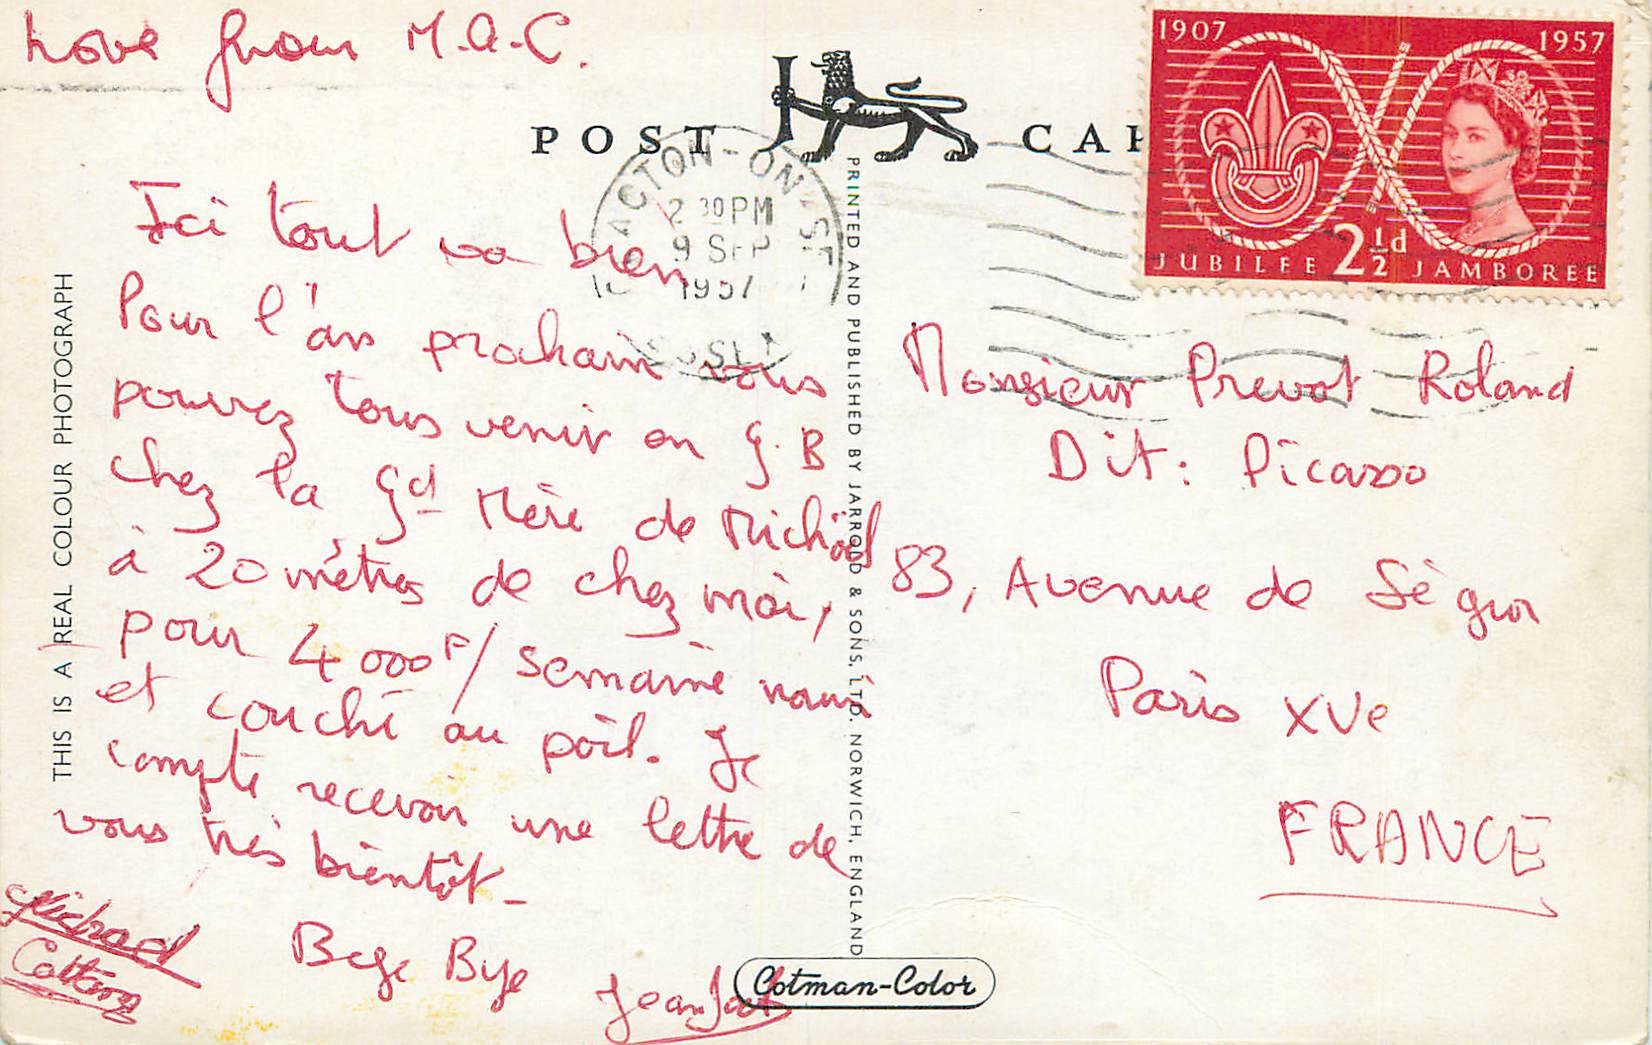 Love from M.A.C.
POST CAR
1907 1957
JUBILEE 2½d JAMBOREE
ACTON-ON-S
2 30PM
9 SEP
1957
Ici tout va bien
Pour l'an prochain vous
pouvez tous venir en G.B
chez la Gd Mère de Michaël
à 20 mètres de chez moi,
pour 4000F/semaine nourri
et couché au poil. Je
compte recevoir une lettre de
vous très bientôt_
Bye Bye
JeanJack
Michael
Cotting
Monsieur Prevot Roland
Dit: Picasso
83, Avenue de Ségur
Paris XVe
FRANCE
THIS IS A REAL COLOUR PHOTOGRAPH
PRINTED AND PUBLISHED BY JARROLD & SONS, LTD. NORWICH, ENGLAND
Cotman-Color